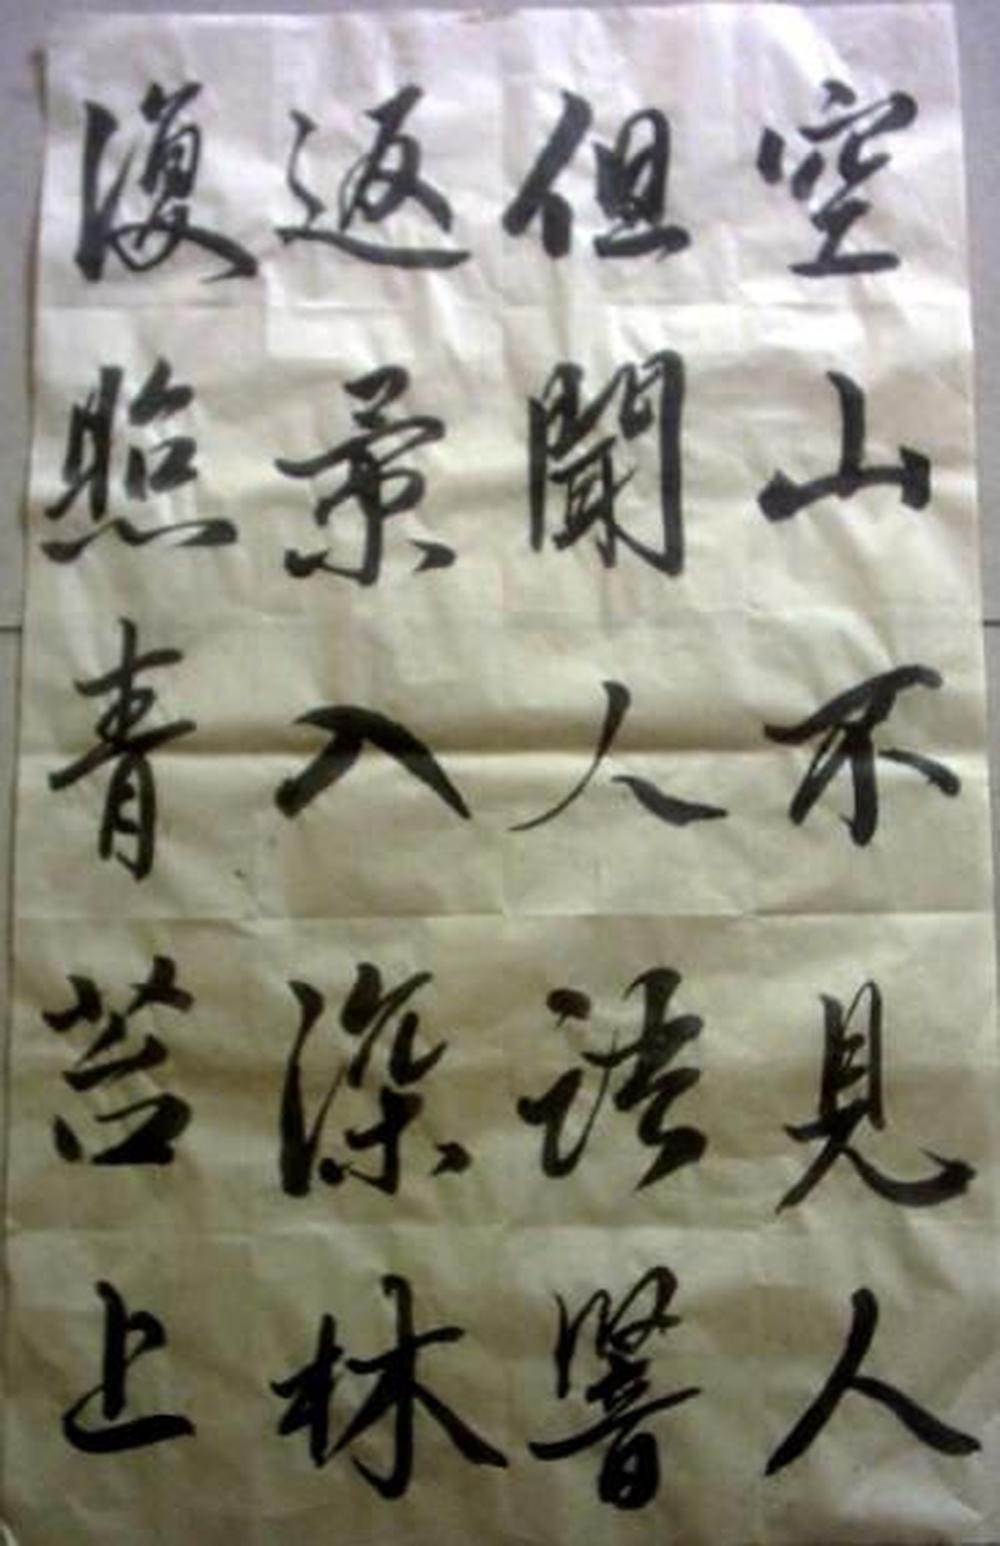 空山不見人
但聞人語響
返景入深林
復照青苔上